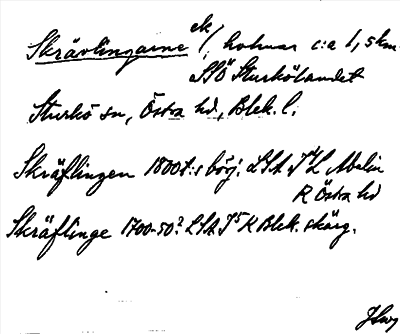 Skrävlingarne sk/, holmar c:a 1,5 km
SSÖ Sturkölandet
Sturkö sn, Östra hd, Blek. l.
Skräflingen 1800t:s börj. LSA I L Melin
R Östra hd
Skräflinge 1700-50? LSA I5 K Blek. skärg.